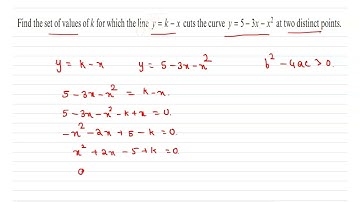 Find the set of values of k for which the line y = k − x cuts the curve y = 5 − 3x − x² at two distinct points.
y = k - x    y = 5 - 3x - x²    b² - 4ac > 0.
5 - 3x - x² = k - x.
5 - 3x - x² - k + x = 0.
-x² - 2x + 5 - k = 0.
x² + 2x - 5 + k = 0.
a